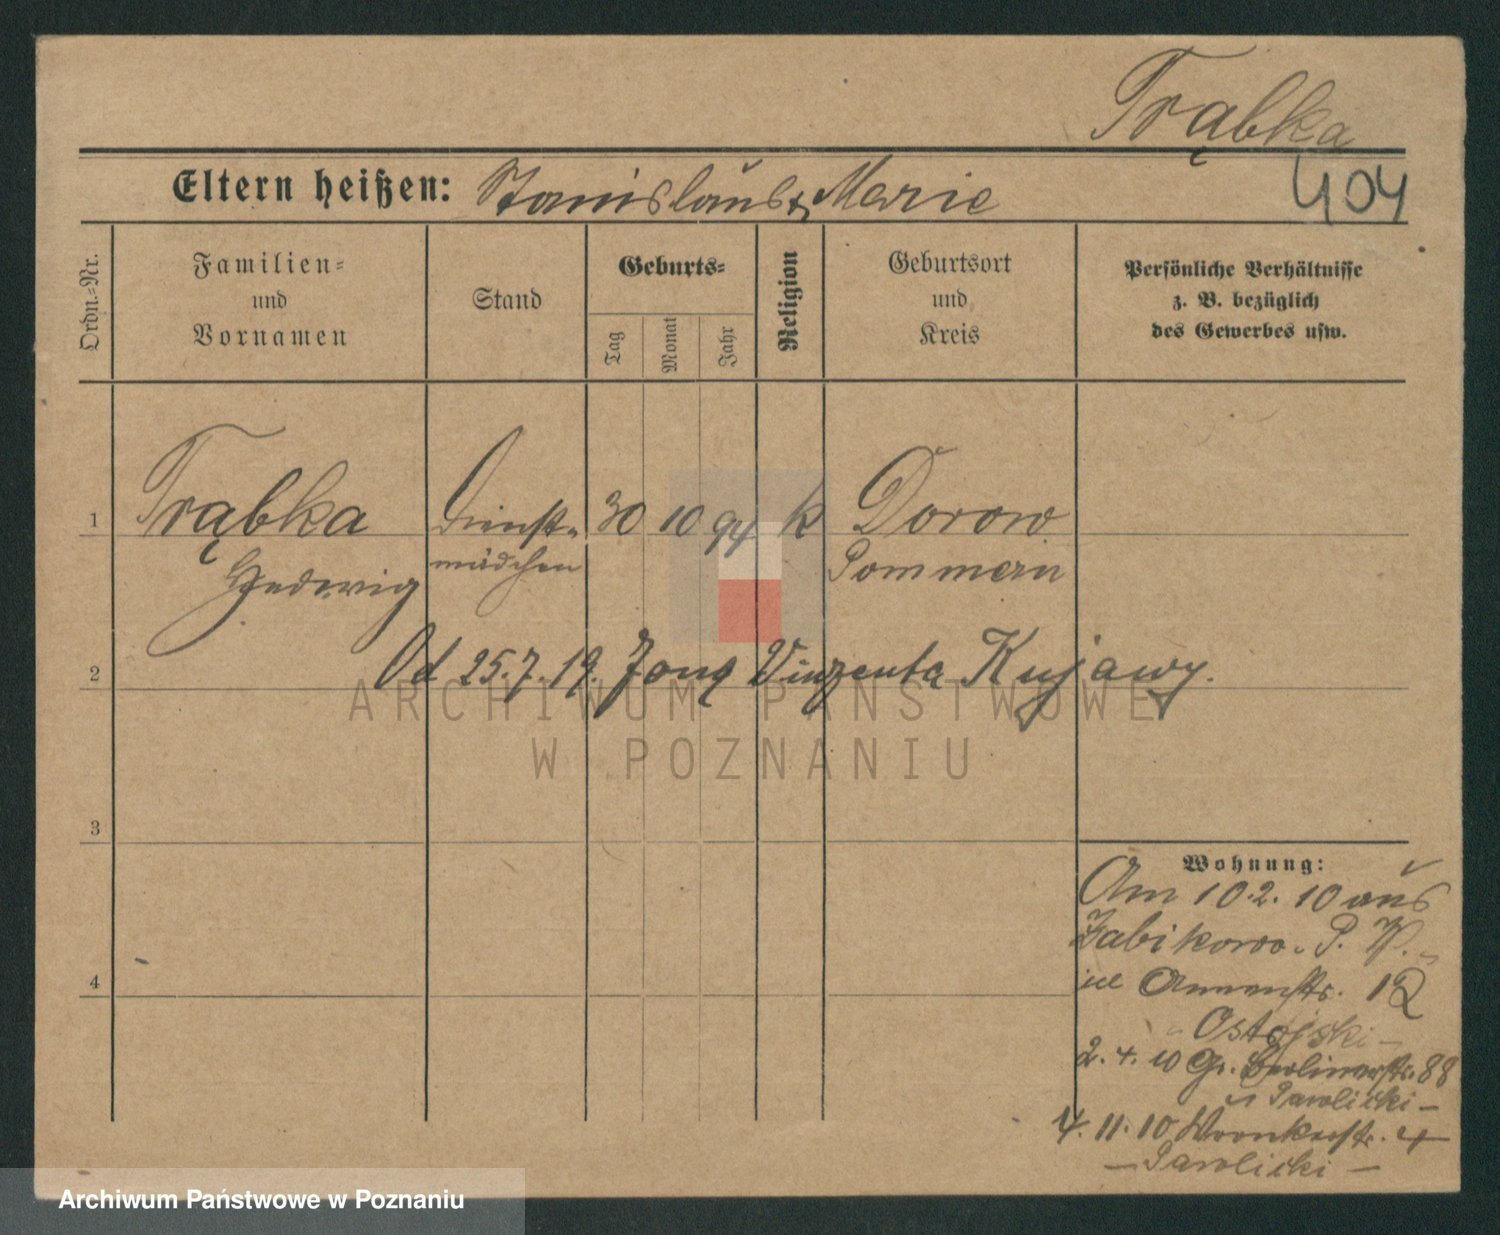 Trąbka
404
Eltern heißen: Stanislaus & Marie
Ordn.-Nr.
Familien-
und
Vornamen
Stand
Geburts-
Tag
Monat
Jahr
Religion
Geburtsort
und
Kreis
Persönliche Verhältnisse
z. B. bezüglich
des Gewerbes usw.
1 Trąbka Dienst- 30 10 94 k Dorow
Hedwig mädchen Pommern
2 Od 25.7.19. Żona Vinzenta Kujawy.
3
4
Wohnung:
Am 10.2.10 aus
Żabikowo P. W.
Annenstr. 12
Ostojski -
2.4.10 Gr. Berlinerstr. 88
Pawlicki -
4.11.10 Wronkerstr. 4
- Pawlicki -
ARCHIWUM PAŃSTWOWE
W POZNANIU
Archiwum Państwowe w Poznaniu